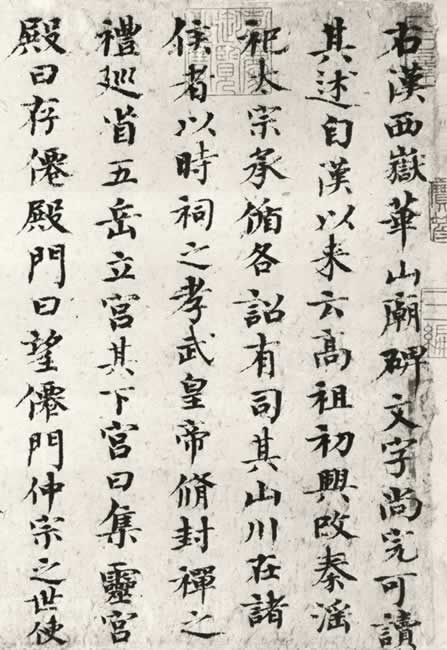 右漢西嶽華山廟碑文字尚完可讀
其述自漢以来云高祖初興改秦淫
祀太宗承循各詔有司其山川在諸
侯者以時祠之孝武皇帝脩封禪之
禮巡省五岳立宮其下宮曰集靈宮
殿曰存僊殿門曰望僊門仲宗之世使